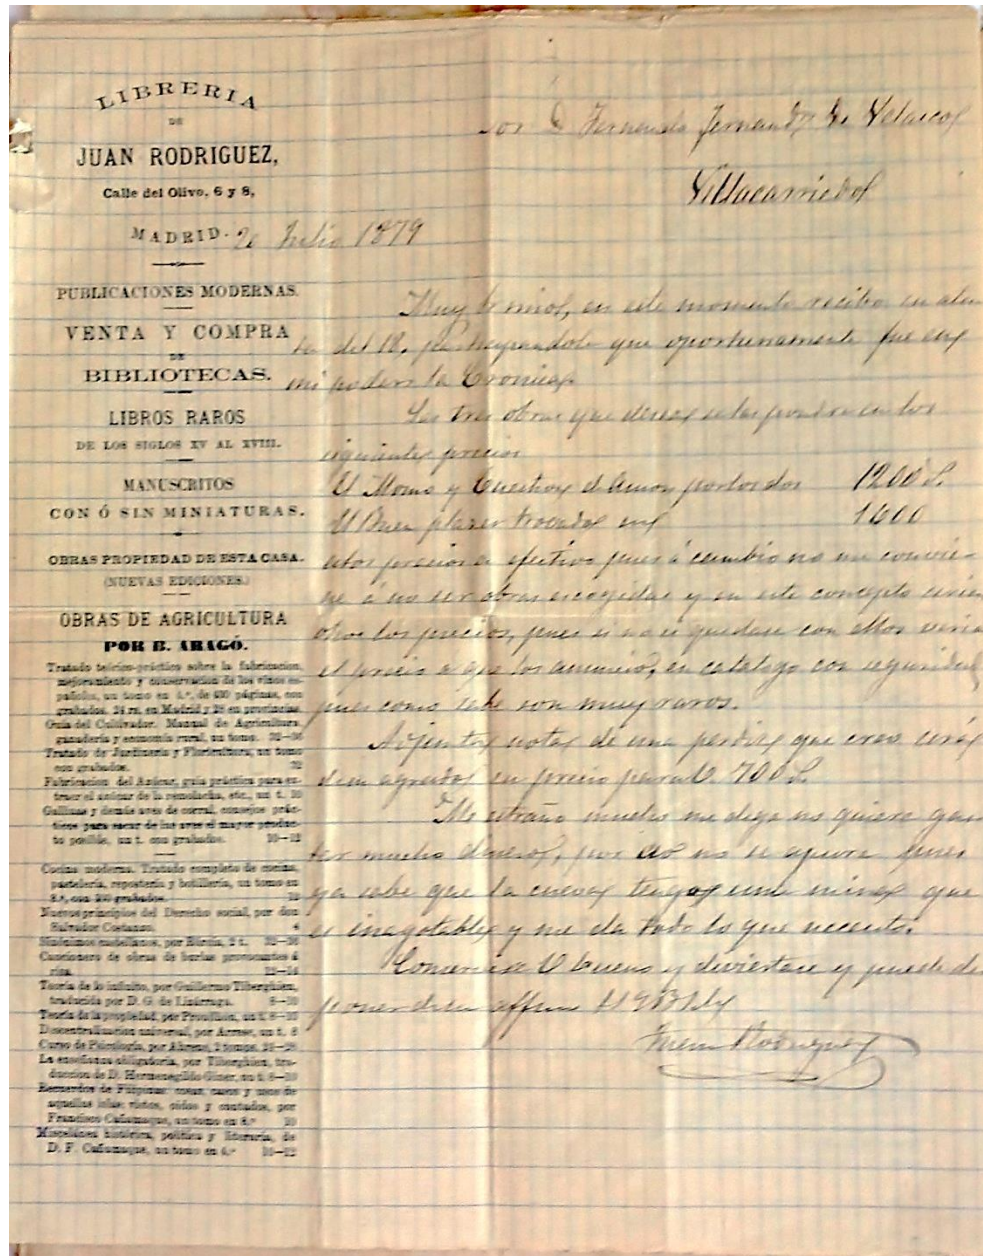 LIBRERIA
DE
JUAN RODRIGUEZ,
Calle del Olivo, 6 y 8,
MADRID. 20 Julio 1879
PUBLICACIONES MODERNAS.
VENTA Y COMPRA
DE
BIBLIOTECAS.
LIBROS RAROS
DE LOS SIGLOS XV AL XVIII.
MANUSCRITOS
CON Ó SIN MINIATURAS.
OBRAS PROPIEDAD DE ESTA CASA.
(NUEVAS EDICIONES.)
OBRAS DE AGRICULTURA
POR B. ARAGÓ.
Tratado teórico-práctico sobre la fabricacion,
mejoramiento y conservacion de los vinos es-
pañoles, un tomo en 4.º, de 400 páginas, con
grabados. 24 rs. en Madrid y 28 en provincias.
Guia del Cultivador. Manual de Agricultura,
ganadería y economía rural, un tomo.
Tratado de Jardinería y Floricultura, un tomo
con grabados.
Fabricacion del Azúcar, guia práctica para ex-
traer el azúcar de la remolacha, etc., un t. 10
Gallinas y demás aves de corral, consejos prác-
ticos para sacar de las aves el mayor produc-
to posible, un t. con grabados. 10—12
Cocina moderna. Tratado completo de cocina,
pastelería, repostería y botillería, un tomo en
8.º, con 200 grabados. 12
Nuevos principios del Derecho social, por don
Salvador Costanzo.
Sinónimos castellanos, por Bárcia, 2 t.
Cancionero de obras de burlas provocantes á
risa. 12—14
Teoría de lo infinito, por Guillermo Tiberghien,
traducida por D. G. de Lizárraga. 8—10
Teoría de la propiedad, por Proudhon, un t. 8—10
Descentralizacion universal, por Arrese, un t. 8
Curso de Psicología, por Ahrens, 2 tomos.
La enseñanza obligatoria, por Tiberghien, tra-
duccion de D. Hermenegildo Giner, un t. 8—10
Recuerdos de Filipinas: cosas, casos y usos de
aquellas islas: vistos, oidos y contados, por
Francisco Cañamaque, un tomo en 8.º 10
Miscelánea histórica, política y literaria, de
D. F. Cañamaque, un tomo en 4.º 10—12
Sor D Fernando Fernandez de Velasco
Villacarriedo
Muy Sr mio, en este momento recibo su aten
ta del 18, que oportunamente fue en
mi poder la Cronica.
Las tres obras que desea se las pondre en los
siguientes precios
El Momo y Question de Amor por los dos 1200 r.
El Buen placer trovado en 1600
estos precios en efectivo pues á cambio no me convie-
ne á no ser obras escogidas y en este concepto serian
otros los precios, pues si no se quedase con ellos veria
el precio a que los anuncio, en catalogo con seguridad
pues como sabe son muy raros.
Adjunta nota de una que creo será
de su agrado su precio para V 700 r.
Me estraña mucho me diga no quiere gas
tar mucho dinero, por eso no se apure pues
ya sabe que la cueva tengo una mina que
es inagotable y me da todo lo que necesito.
Conservese V bueno y diviertase y puede dis
poner de su affmo
Juan Rodriguez